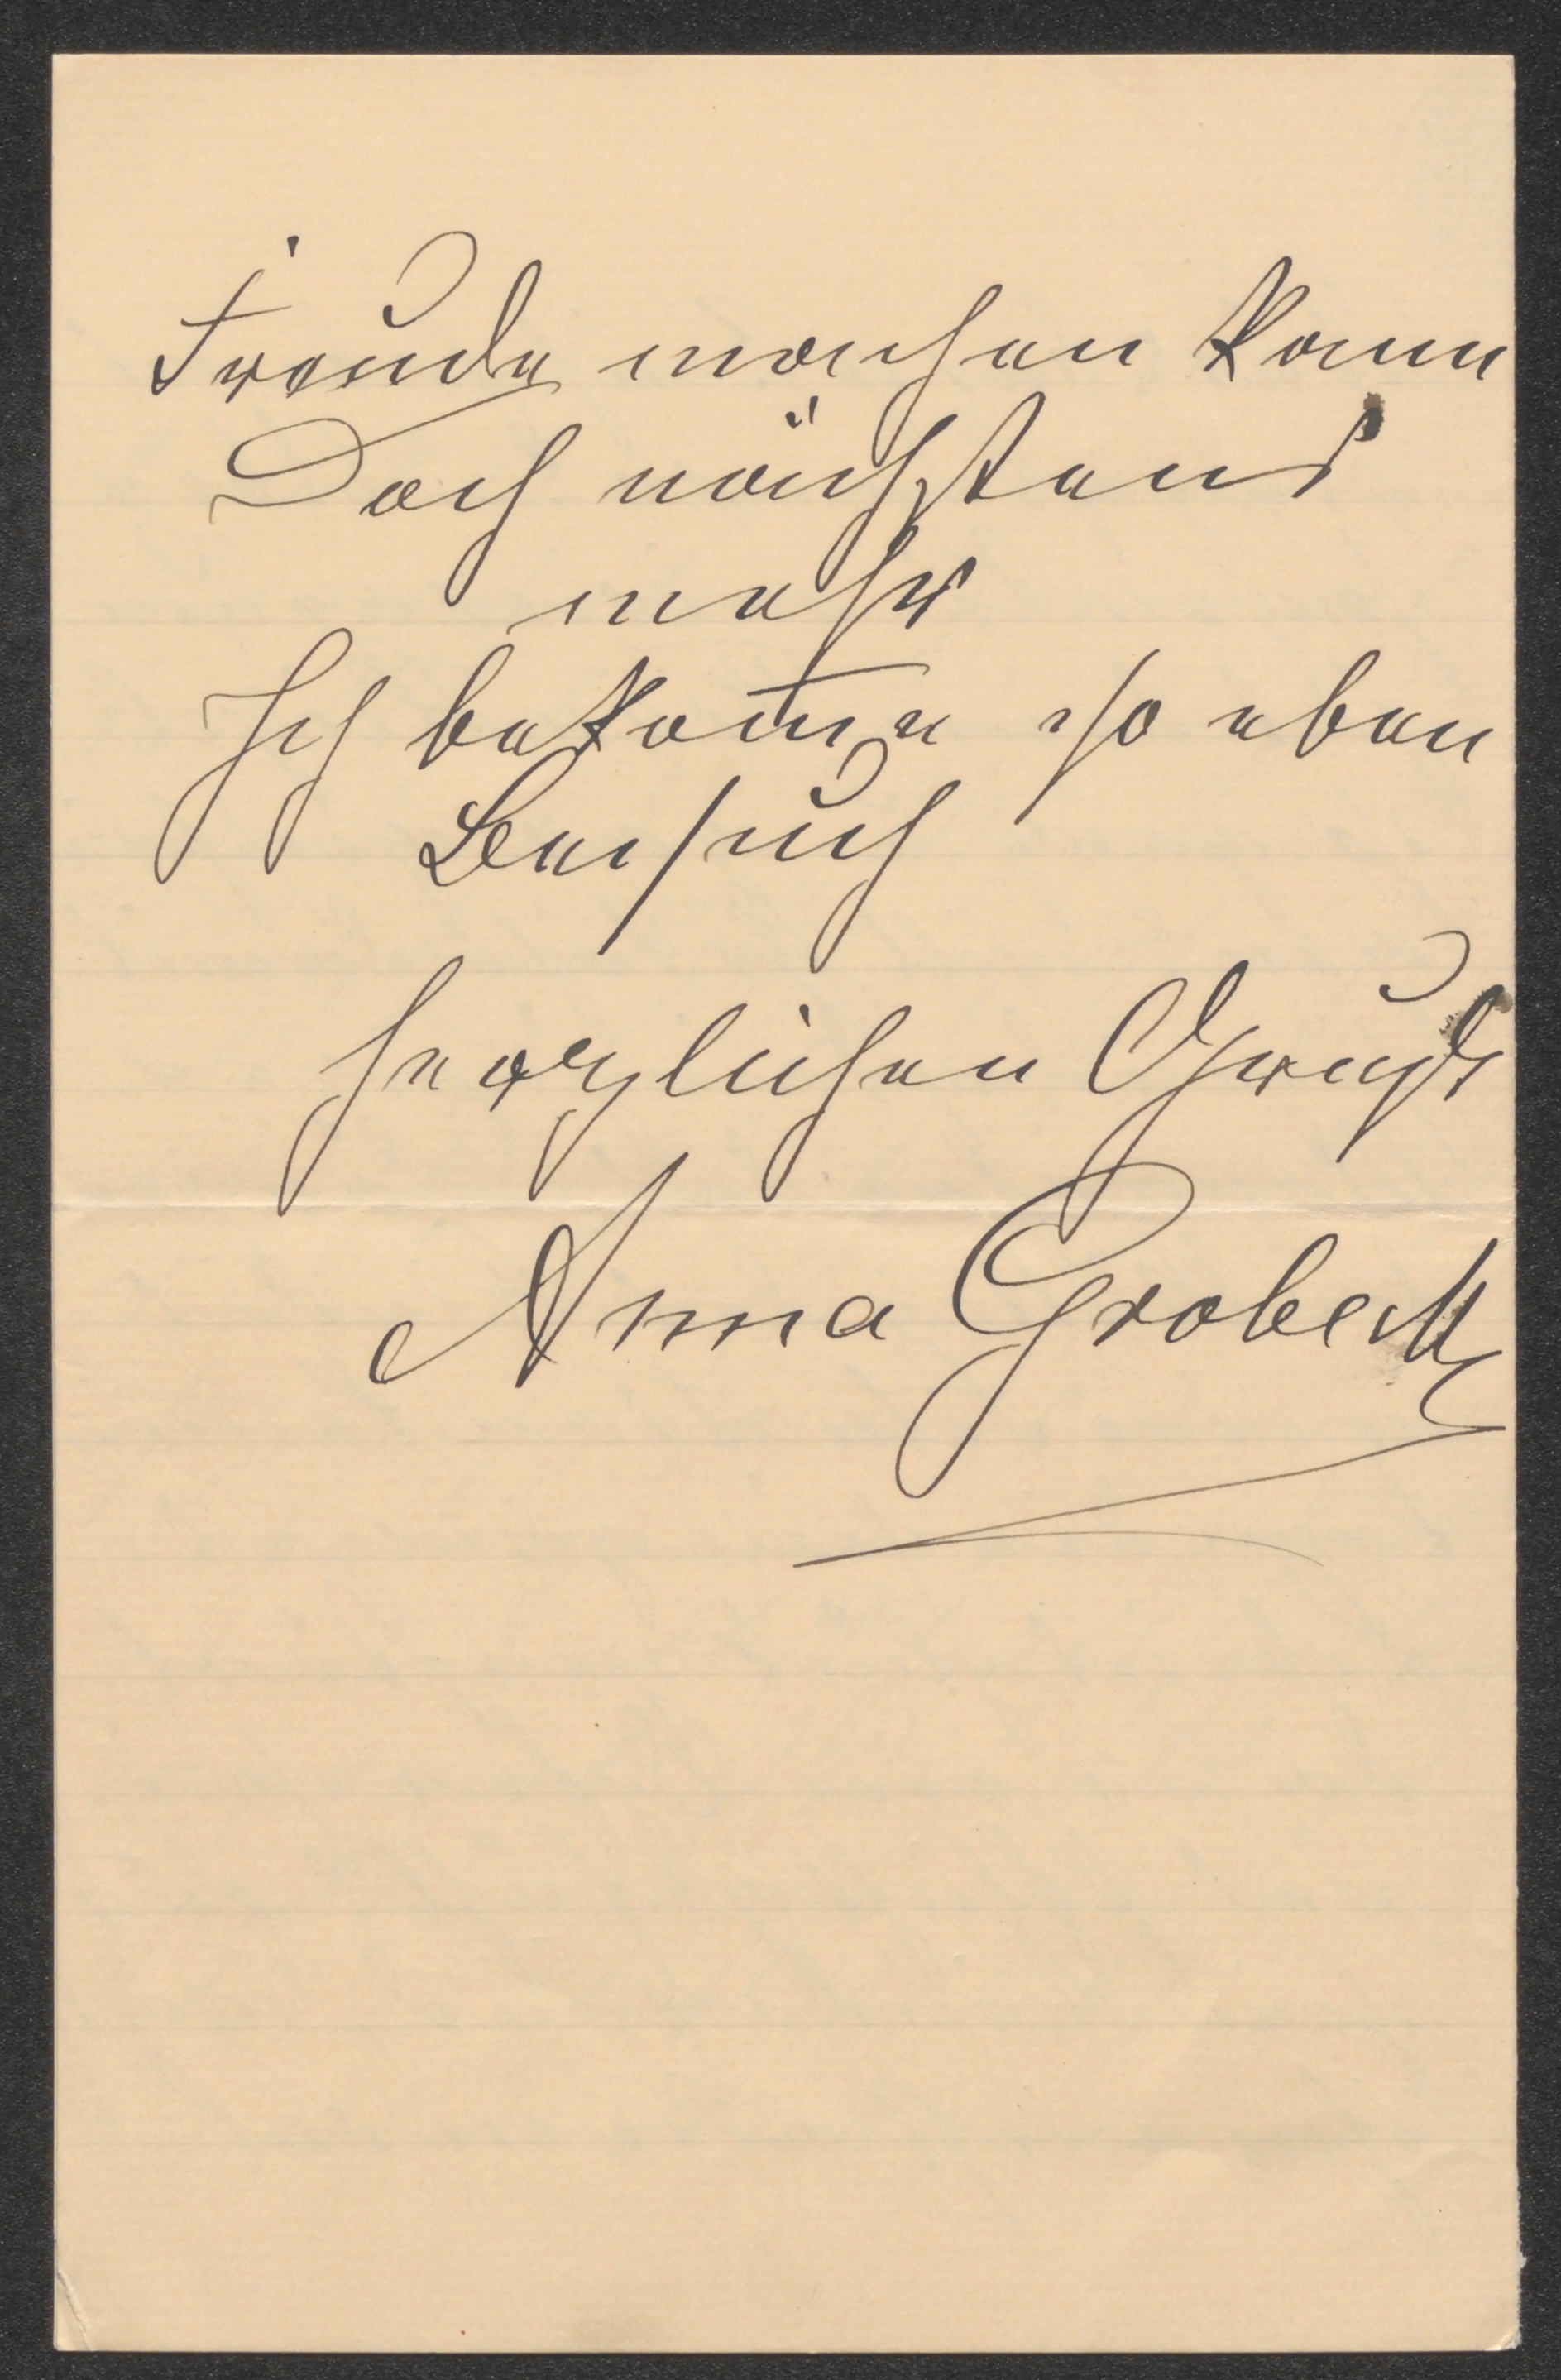 Freude machen kann
Doch nächstens
mehr
Ich bekom̅e so eben
Besuch
herzlichen Gruß
Anna Grobeck